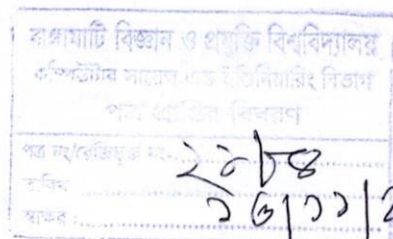 রাঙ্গামাটি বিজ্ঞান ও প্রযুক্তি বিশ্ববিদ্যালয়
কম্পিউটার সায়েন্স এন্ড ইঞ্জিনিয়ারিং বিভাগ
পত্র প্রাপ্তির বিবরণ
পত্র নং/রেজিস্ট্রি নং-
তারিখ
স্বাক্ষর :